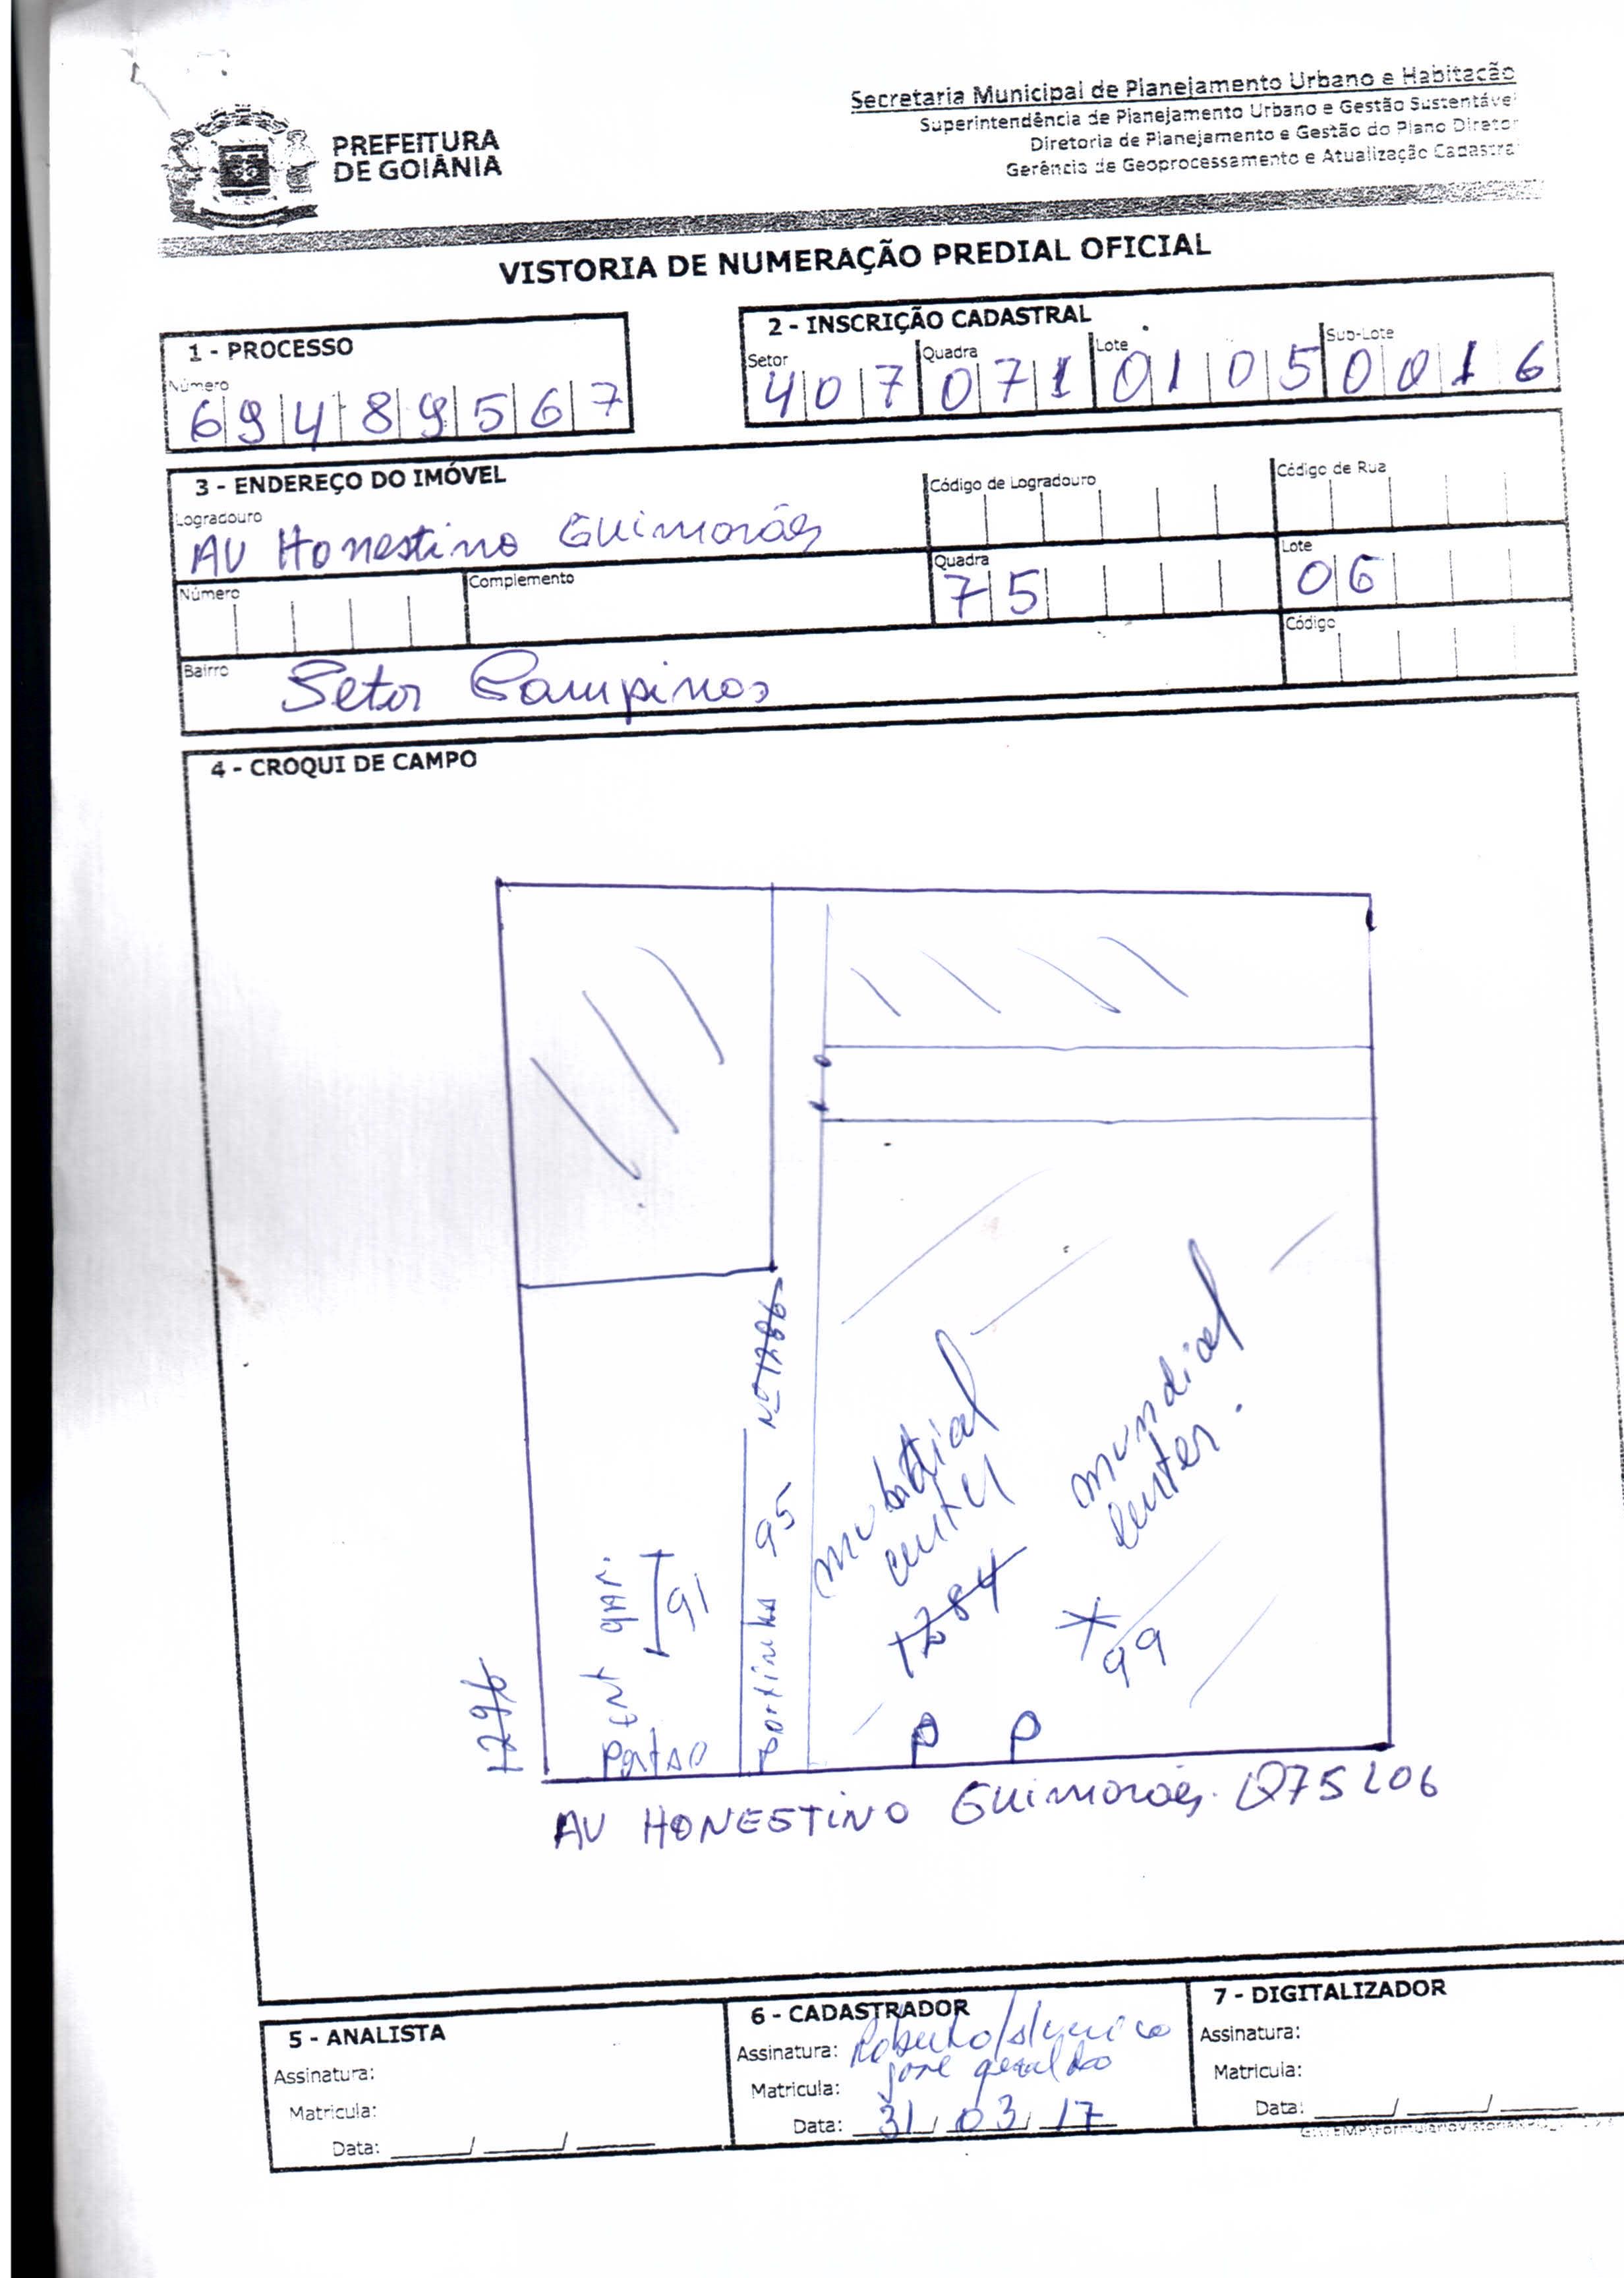 PREFEITURA
DE GOIÂNIA
Secretaria Municipal de Planejamento Urbano e Habitação
Superintendência de Planejamento Urbano e Gestão Sustentável
Diretoria de Planejamento e Gestão do Plano Diretor
Gerência de Geoprocessamento e Atualização Cadastral
VISTORIA DE NUMERAÇÃO PREDIAL OFICIAL
1 - PROCESSO
Número
69489567
2 - INSCRIÇÃO CADASTRAL
Setor Quadra Lote Sub-Lote
407 071 0105 0016
3 - ENDEREÇO DO IMÓVEL
Logradouro
AV Honestino Guimarães
Código de Logradouro
Código de Rua
Número
Complemento
Quadra
75
Lote
06
Bairro
Setor Campinas
Código
4 - CROQUI DE CAMPO
Nº 1286
portinha 95
ENT gar.
91
Portão
1296
mundial
center
1284
mundial
center.
99
P P
AV HONESTINO Guimarães. Q75 L06
5 - ANALISTA
Assinatura:
Matricula:
Data: ____/____/____
6 - CADASTRADOR
Assinatura:
josé geraldo
Matricula:
Data: 31/03/17
7 - DIGITALIZADOR
Assinatura:
Matricula:
Data: ____/____/____